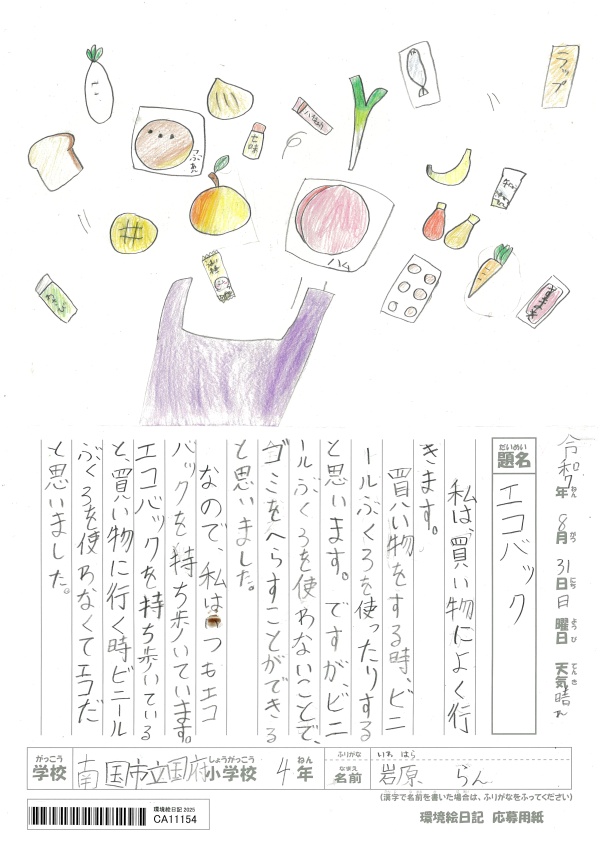 ラップ
つぶあん
七味
ハム
わさび
令和7年 8月 31日 日曜日 天気 晴れ
ねん がつ にち ようび てんき
だいめい
題名
エコバック
私は、買い物によく行
きます。
買い物をする時、ビニ
ールぶくろを使ったりする
と思います。ですが、ビニ
ールぶくろを使わないことで、
ゴミをへらすことができる
と思いました。
なので、私はいつもエコ
バックを持ち歩いています。
エコバックを持ち歩いている
と、買い物に行く時ビニール
ぶくろを使わなくてエコだ
と思いました。
がっこう
学校
南国市立国府小学校
しょうがっこう
4年
ねん
ふりがな
いわ はら
なまえ
名前
岩原 らん
(漢字で名前を書いた場合は、ふりがなをふってください)
環境絵日記 2025
CA11154
環境絵日記 応募用紙